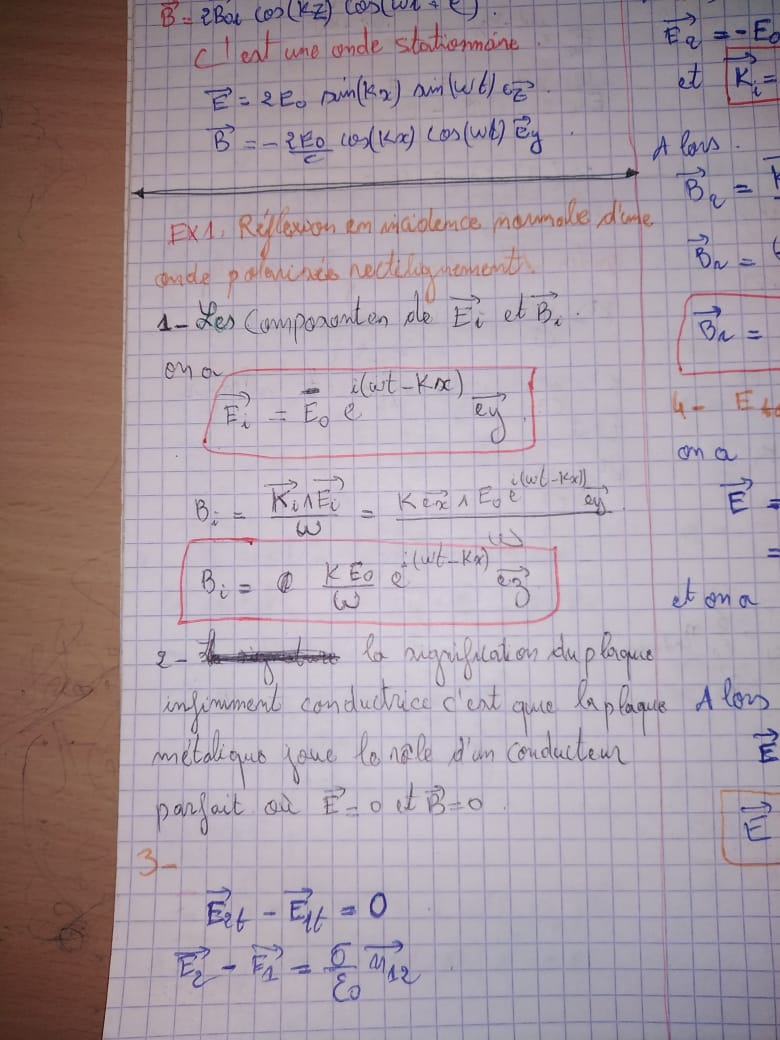 B⃗ = 2B₀ᵢ cos(kz) cos(wt +
C'est une onde stationnaire.
E⃗ = 2E₀ sin(Kx) sin(wt) e⃗z
B⃗ = - 2E₀/c cos(Kx) cos(wt) e⃗y .
EX1. Réflexion en incidence normale d'une
onde polarisée rectilignement.
1- Les Composantes de E⃗i et B⃗i .
on a
E⃗i = E₀ e^i(wt-Kx) e⃗y
Bi = K⃗i∧E⃗i / w = K e⃗x ∧ E₀ e^i(wt-Kx) e⃗y / w
Bi = K E₀ / w e^i(wt-Kx) e⃗z
2- la signification du plaque
infiniment conductrice c'est que la plaque
métalique joue le rôle d'un conducteur
parfait où E⃗=0 et B⃗=0 .
3-
E⃗2t - E⃗1t = 0
E⃗2 - E⃗1 = σ/ε₀ n⃗12
E⃗r = - E₀
et K⃗i =
Alors .
B⃗r =
B⃗r =
B⃗r =
4-
on a
E⃗ =
=
et on a
Alors
E⃗
E⃗